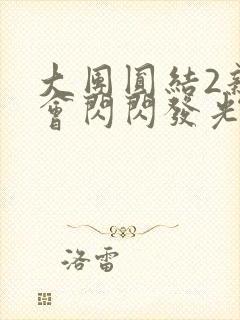 大團圓結2新
會閃閃發光
洛雷